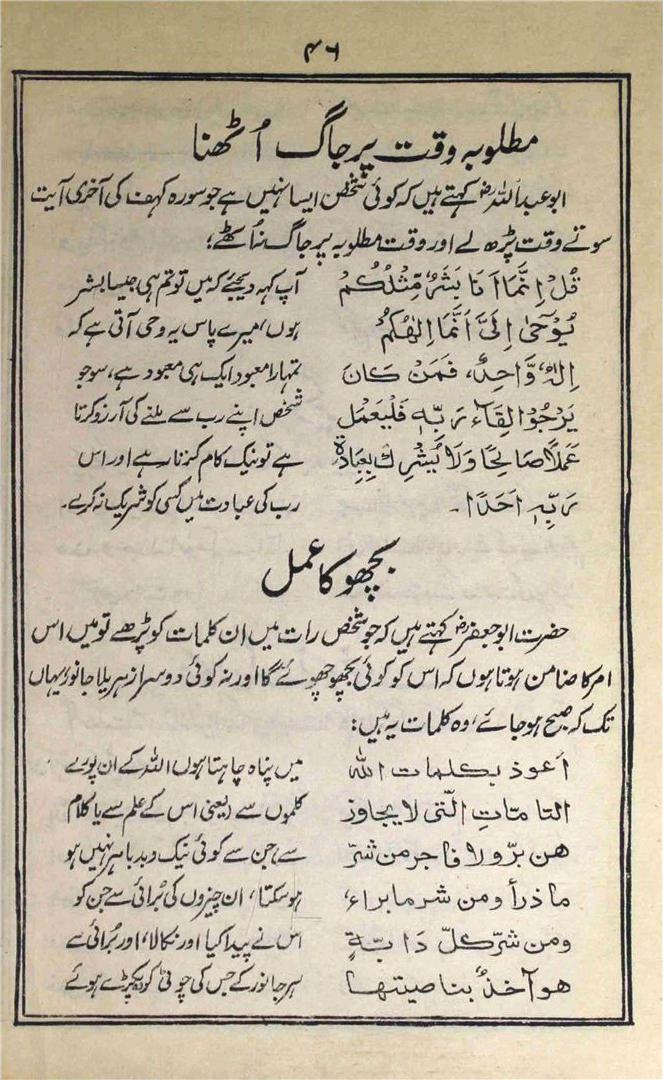 ۴۶
مطلوبہ وقت پر جاگ اُٹھنا
ابو عبد اللہؓ کہتے ہیں کہ کوئی شخص ایسا نہیں ہے جو سورہ کہف کی آخری آیت
سوتے وقت پڑھ لے اور وقت مطلوبہ پر جاگ نہ اُٹھے؛
قُلْ اِنَّمَا اَنَا بَشَرٌ مِّثْلُكُمْ آپ کہہ دیجئے کہ میں تو تم ہی جیسا بشر
يُوْحٰى اِلَىَّ اَنَّمَا اِلٰهُكُمْ ہوں، میرے پاس یہ وحی آتی ہے کہ
اِلٰهٌ وَّاحِدٌ، فَمَنْ كَانَ تمہارا معبود ایک ہی معبود ہے، سو جو
يَرْجُوْا لِقَآءَ رَبِّهٖ فَلْيَعْمَلْ شخص اپنے رب سے ملنے کی آرزو کرتا
عَمَلًا صَالِحًا وَلَا يُشْرِكْ بِعِبَادَةِ ہے تو نیک کام کرتا رہے اور اس
رَبِّهٖ اَحَدًا۔ رب کی عبادت میں کسی کو شریک نہ کرے۔
بچھو کا عمل
حضرت ابو جعفرؓ کہتے ہیں کہ جو شخص رات میں ان کلمات کو پڑھے تو میں اس
امر کا ضامن ہوتا ہوں کہ اس کو کوئی بچھو چھوئے گا اور نہ کوئی دوسرا زہریلا جانور، یہاں
تک کہ صبح ہو جائے، وہ کلمات یہ ہیں:
اَعوذ بكلمات اللّٰه میں پناہ چاہتا ہوں اللہ کے ان پورے
التامّاتِ الّتى لا يجاوز کلموں سے (یعنی اس کے علم سے یا کلام
هن برّ ولا فاجر من شرّ سے) جن سے کوئی نیک و بد باہر نہیں ہو
ما ذرأ ومن شر ما براء، ہو سکتا، ان چیزوں کی بُرائی سے جن کو
ومن شرّ كلّ دَابّةٍ اس نے پیدا کیا اور نکالا، اور بُرائی سے
هو آخذٌ بناصيتها ہر جانور کے جس کی چوٹی کو وہ پکڑے ہوئے